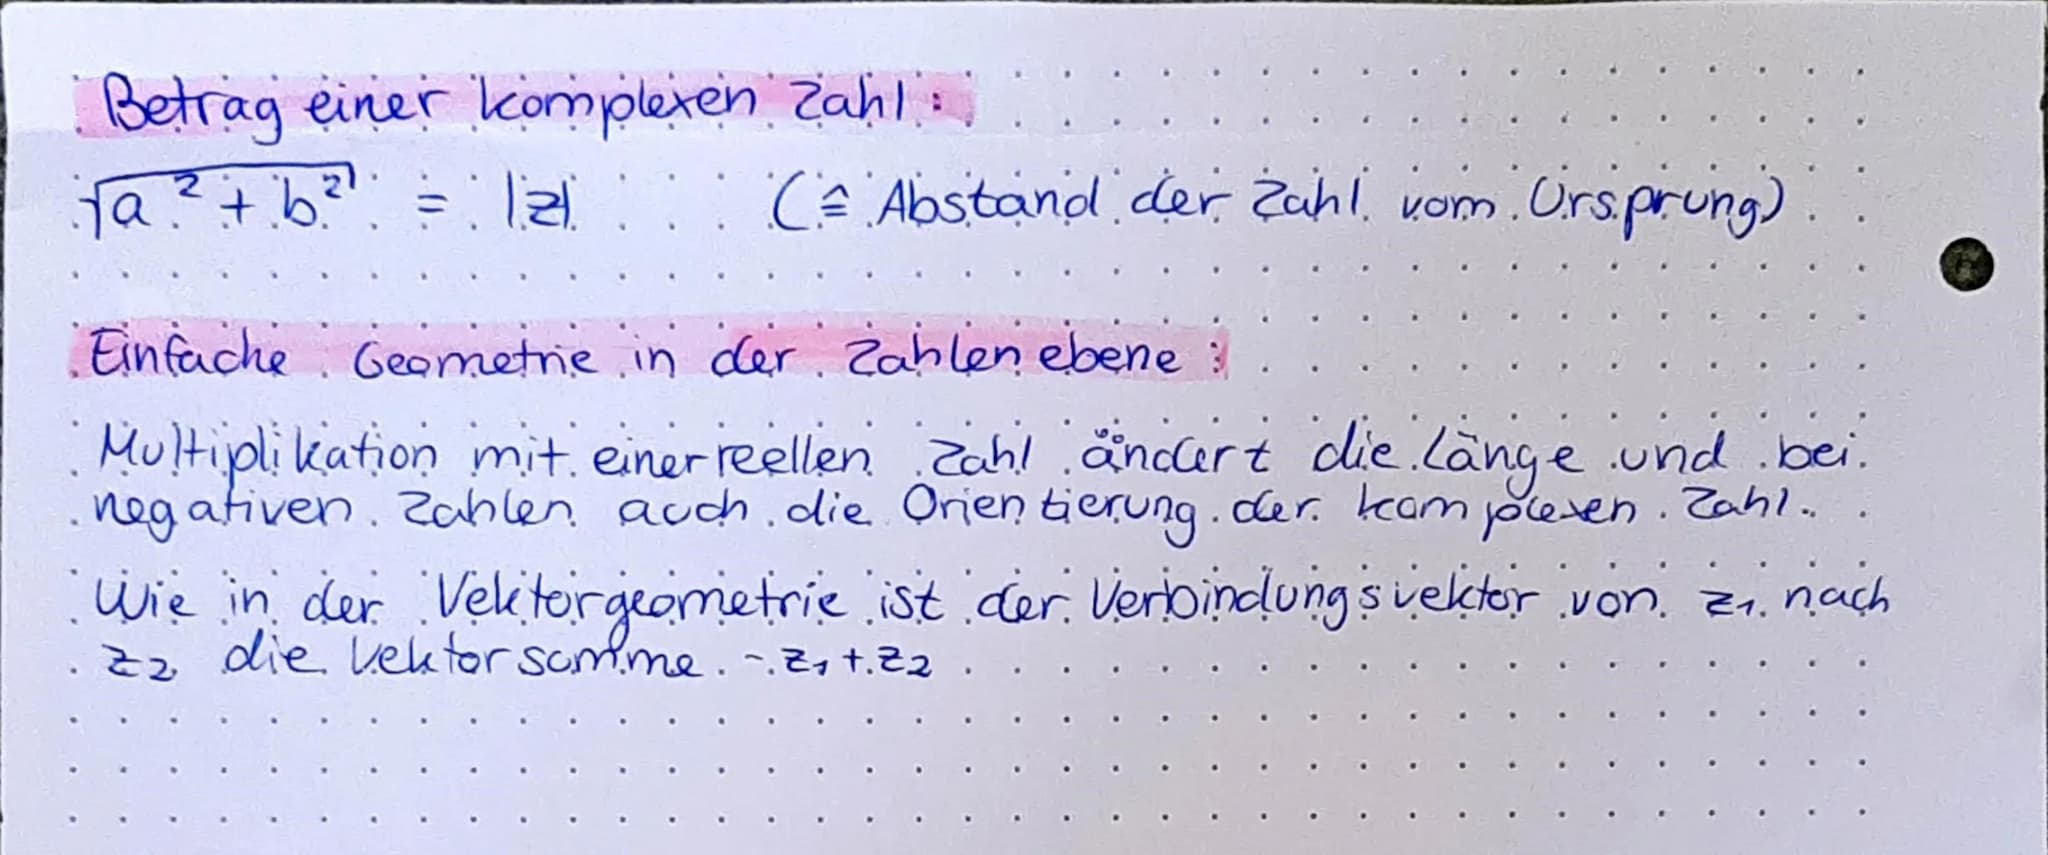 Betrag einer komplexen Zahl:
√(a² + b²) = |z| (≙ Abstand der Zahl vom Ursprung)
Einfache Geometrie in der Zahlenebene:
Multiplikation mit einer reellen Zahl ändert die Länge und bei
negativen Zahlen auch die Orientierung der komplexen Zahl.
Wie in der Vektorgeometrie ist der Verbindungsvektor von z₁ nach
z₂ die Vektorsumme -z₁ + z₂